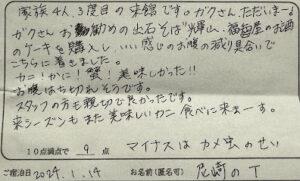 家族4人、3度目の来館です。ガクさん、ただいまーる
ガクさんお勧めの出石そば"輝山"、福智屋のお酒
のケーキを購入し、いい感じのお腹の減り具合で
こちらに着きました。
カニ!かに!蟹!美味しかった!!
お腹はち切れそうです。
スタッフの方も親切で良かったです。
来シーズンもまた美味しいカニ食べに来まーす。
10点満点で 9 点 マイナスはカメ虫のせい
ご宿泊日 2024.1.14 お名前(匿名可) 尼崎のT